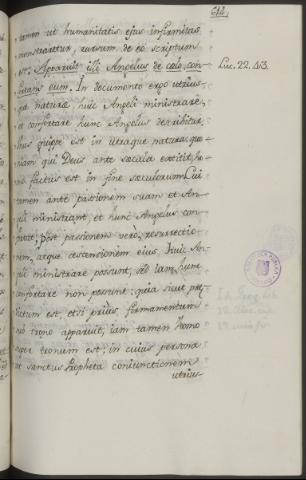 tamen ut humanitatis ejus infirmitas
monstraretur, rursum de eo scriptum
est: Apparuit illi Angelus de cælo, con-
fortans eum. In documento ergo utrius-
que naturæ huic Angeli ministrare,
et confortare hunc Angelus describitur.
Unus quippe est in utraque natura: quo-
niam qui Deus ante sæcula extitit, ho-
mo factus est in fine sæculorum. Cui
tamen ante passionem suam et An-
geli ministrant, et hunc Angelus con-
fortat; post passionem vero, resurrectio-
nem, atque ascensionem ejus, huic An-
geli ministrare possunt, sed iam hunc
confortare non possunt: quia sicut præ-
dictum est, etsi prius firmamentum
sub homo apparuit, iam tamen homo
super tronum est, in cuius persona
sanctus Propheta coniunctionem
utrius-
Luc. 22. 43.